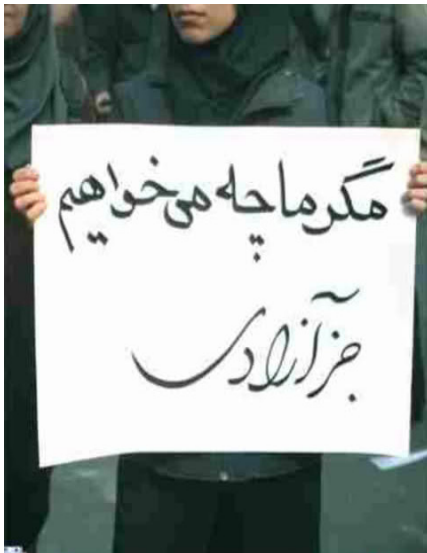 مگر ما چه می خواهیم
جز آزادی